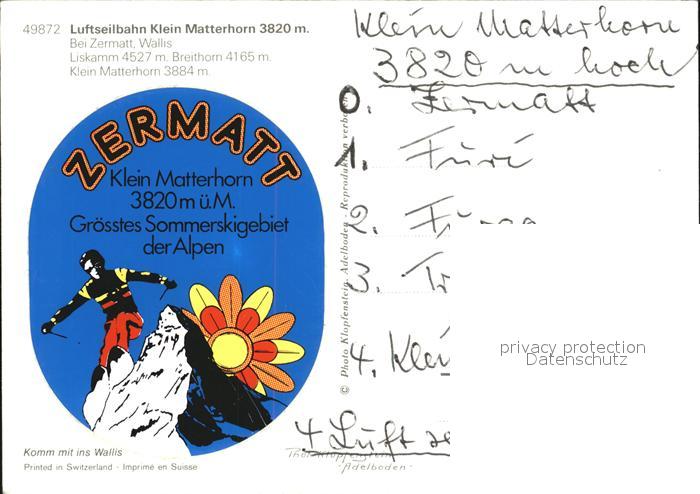 49872 Luftseilbahn Klein Matterhorn 3820 m.
Bei Zermatt, Wallis
Liskamm 4527 m. Breithorn 4165 m.
Klein Matterhorn 3884 m.
ZERMATT
Klein Matterhorn
3820 m ü.M.
Grösstes Sommerskigebiet
der Alpen
Komm mit ins Wallis
Printed in Switzerland - Imprimé en Suisse
© Photo Klopfenstein, Adelboden - Reproduktion verboten
Klein Matterhorn
3820 m hoch
0. Zermatt
1. Furi
2.
3.
4. Klei
4 Luft
Klopfenstein
-Adelboden-
privacy protection
Datenschutz